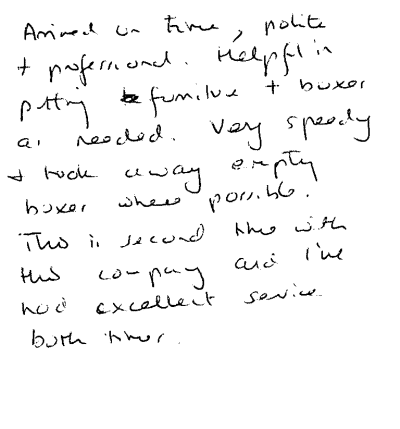 Arrived on time, polite
+ professional. Helpful in
putting furniture + boxes
as needed. Very speedy
+ took away empty
boxes where possible.
This is second time with
this company and I've
had excellent service
both times.